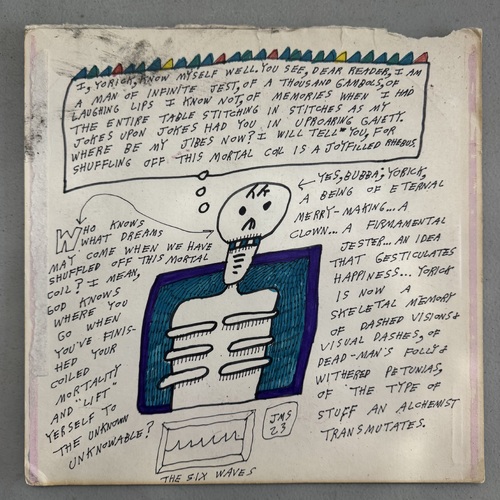 I, YORICK, KNOW MYSELF WELL. YOU SEE, DEAR READER, I AM
A MAN OF INFINITE JEST, OF A THOUSAND GAMBOLS, OF
LAUGHING LIPS I KNOW NOT, OF MEMORIES WHEN I HAD
THE ENTIRE TABLE STITCHING IN STITCHES AS MY
JOKES UPON JOKES HAD YOU IN UPROARING GAIETY.
WHERE BE MY JIBES NOW? I WILL TELL YOU, FOR
SHUFFLING OFF THIS MORTAL COIL IS A JOYFILLED RHEBUS.
WHO KNOWS
WHAT DREAMS
MAY COME WHEN WE HAVE
SHUFFLED OFF THIS MORTAL
COIL? I MEAN,
GOD KNOWS
WHERE YOU
GO WHEN
YOU'VE FINIS-
HED YOUR
COILED
MORTALITY
AND "LIFT"
YERSELF TO
THE UNKNOWN
UNKNOWABLE?
YES, BUBBA; YORICK,
A BEING OF ETERNAL
MERRY-MAKING... A
CLOWN... A FIRMAMENTAL
JESTER... AN IDEA
THAT GESTICULATES
HAPPINESS... YORICK
IS NOW A
SKELETAL MEMORY
OF DASHED VISIONS &
VISUAL DASHES, OF
DEAD-MAN'S FOLLY &
WITHERED PETUNIAS,
OF THE TYPE OF
STUFF AN ALCHEMIST
TRANSMUTATES.
JMS
23
THE SIX WAVES